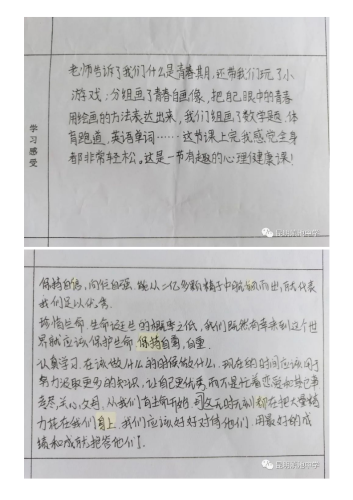 学习感受
老师告诉了我们什么是青春期,还带我们玩了小
游戏,分组画了青春自画像,把自己眼中的青春
用绘画的方法表达出来,我们组画了数学题、体
育跑道、英语单词……这节课上完我感觉全身
都非常轻松。这是一节有趣的心理健康课!
昆明滇池中学
保持自信,自强,能从二亿多颗精子中脱颖而出,就代表
我们足以优秀。
珍惜生命.生命诞生的概率之低,我们既然有幸来到这个世
界就应该保护生命.保持自尊,自重.
认真学习.在该做什么的时候做什么.现在的时间应该用于
努力汲取更多的知识,让自己更优秀,而不是忙着恋爱和其它事
关心父母.从我们有生命开始,无时无刻都在把大量精
力花在我们身上.我们应该好好对待他们,用最好的成
绩和成就报答他们!
昆明滇池中学